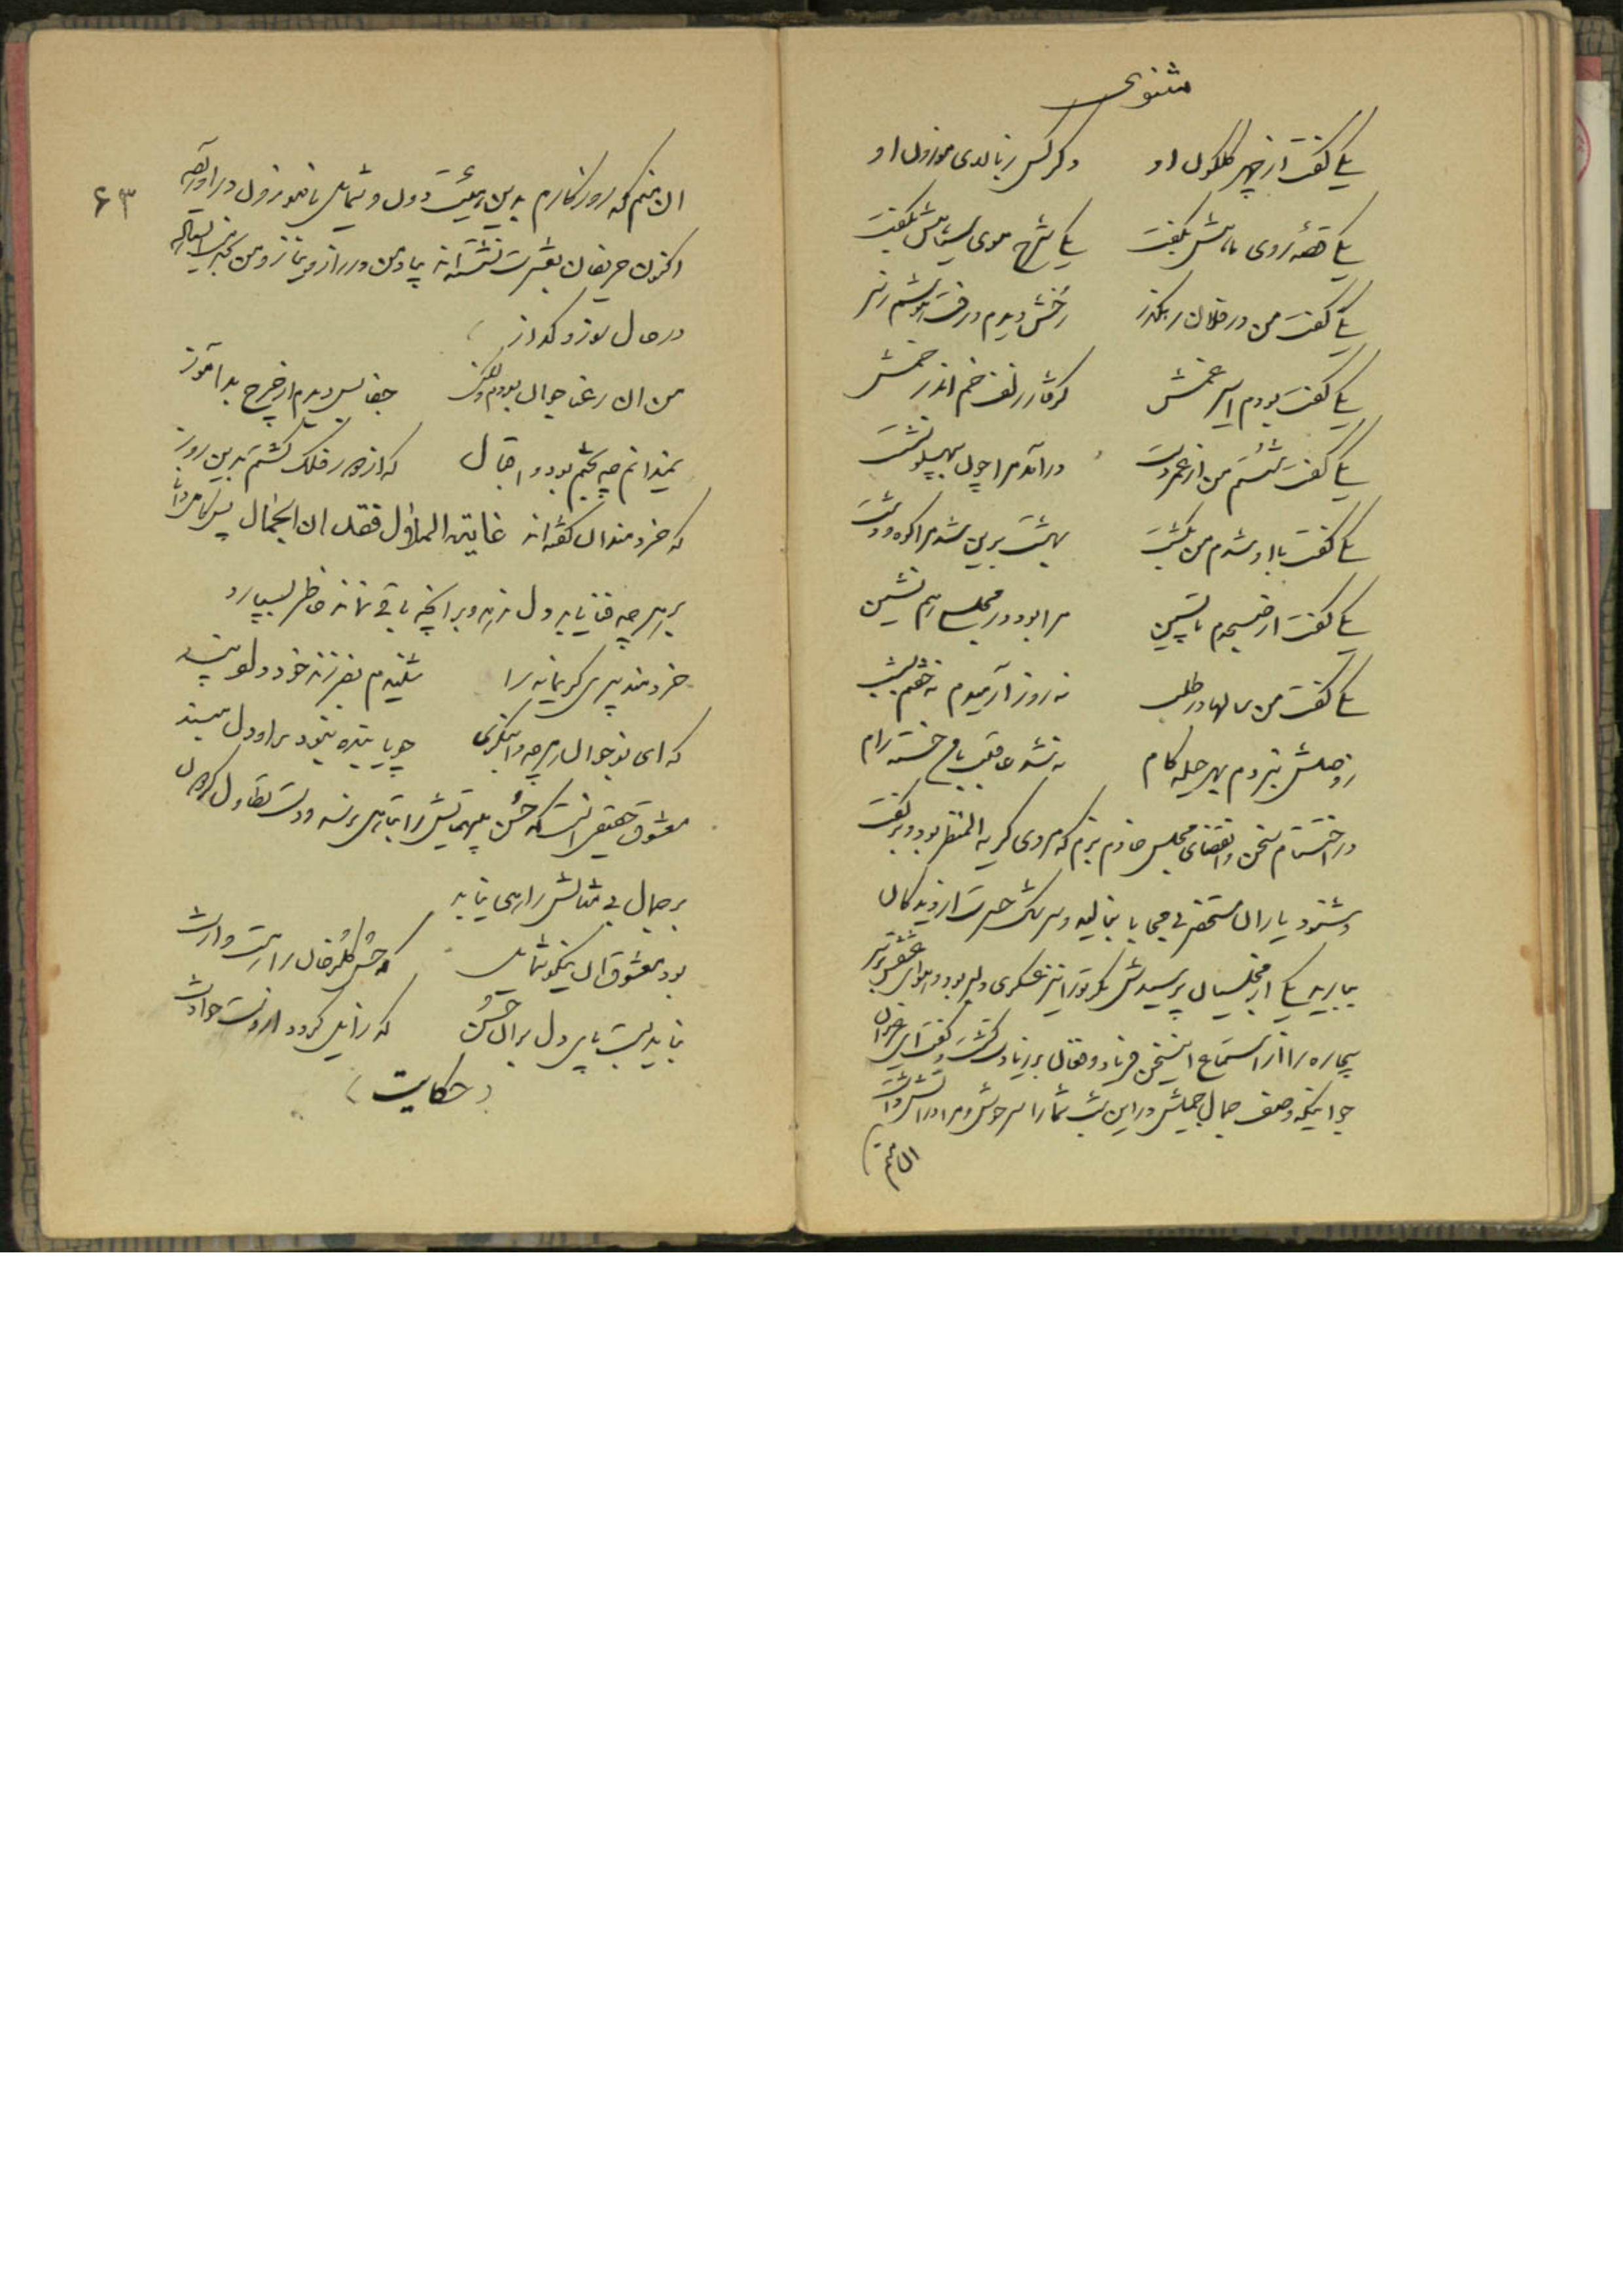 مثنوی
یکی گفت از چهر گلگون او دگر کس ز بالای موزون او
یکی قصهٔ روی ماهش بگفت یکی شرح موی سیاهش بگفت
یکی گفت من در فلان رهگذر رخش دیدم و رفت هوشم ز سر
یکی گفت بودم اسیر غمش گرفتار زلف خم اندر خمش
یکی گفت شستم من از عمر دست درآمد مرا چون بپهلو نشست
یکی گفت با او شدم من بگشت بهشت برین شد مرا کوه و دشت
یکی گفت از صبحدم تا پسین مرا بود در مجلسی هم نشین
یکی گفت من سالها در طلب نه روز آرمیدم نه خفتم بشب
ز وصلش نبردم بهر حیله کام نشد عاقبت با من خسته رام
در اختتام سخن و انقضای مجلس خادم بزم که مردی کریه المنظر بود و بر گفت
و شنود یاران مستحضر بی محابا بنالید و سرشک حسرت از دیدگان
ببارید یکی از مجلسیان پرسیدش مگر تو را نیز عسکری دلبر بود و هوای عشقش بر سر
بیچاره را از استماع اینسخن فریاد و فغان بر زیادت گشت و گفت ای
جوانیکه وصف جمال جمیلش در این شب شما را سرخوش و مرا در آتش داشت
آن منم
۶۳
آن منم که روزگارم بدین هیئت دون و شمایل ناموزون درآورده
اکنون حریفان بعشرت نشسته‌اند بیاد من و در راز و نیاز و من
در حال سوز و گداز
من آن رعنا جوان بودم جفا بس دیدم از چرخ بدآموز
نمیدانم چه بختم بود و اقبال که از دور فلک گشتم بدین روز
که خردمندان گفته‌اند غایة المأمول فقدان الجمال پس
بر هرچه فنا یابد دل ننهد و بر آنچه باقی ماند خاطر بسپارد
خردمند پیری گرنمایه را شنیدم بفرزند خود داد پند
که ای نوجوان هرچه را بنگری چو پاینده نبود بر او دل مبند
معشوق حقیقی آنست که حسن بیهمتایش را تباهی نرسد و دست تطاول
بر جمال بی مثالش راهی نیابد
بود معشوق آن نیکو شمایل که حسن گلرخان را هست وارث
نباید بست باری دل بر آن حسن که زایل گردد از دست حوادث
(حکایت)